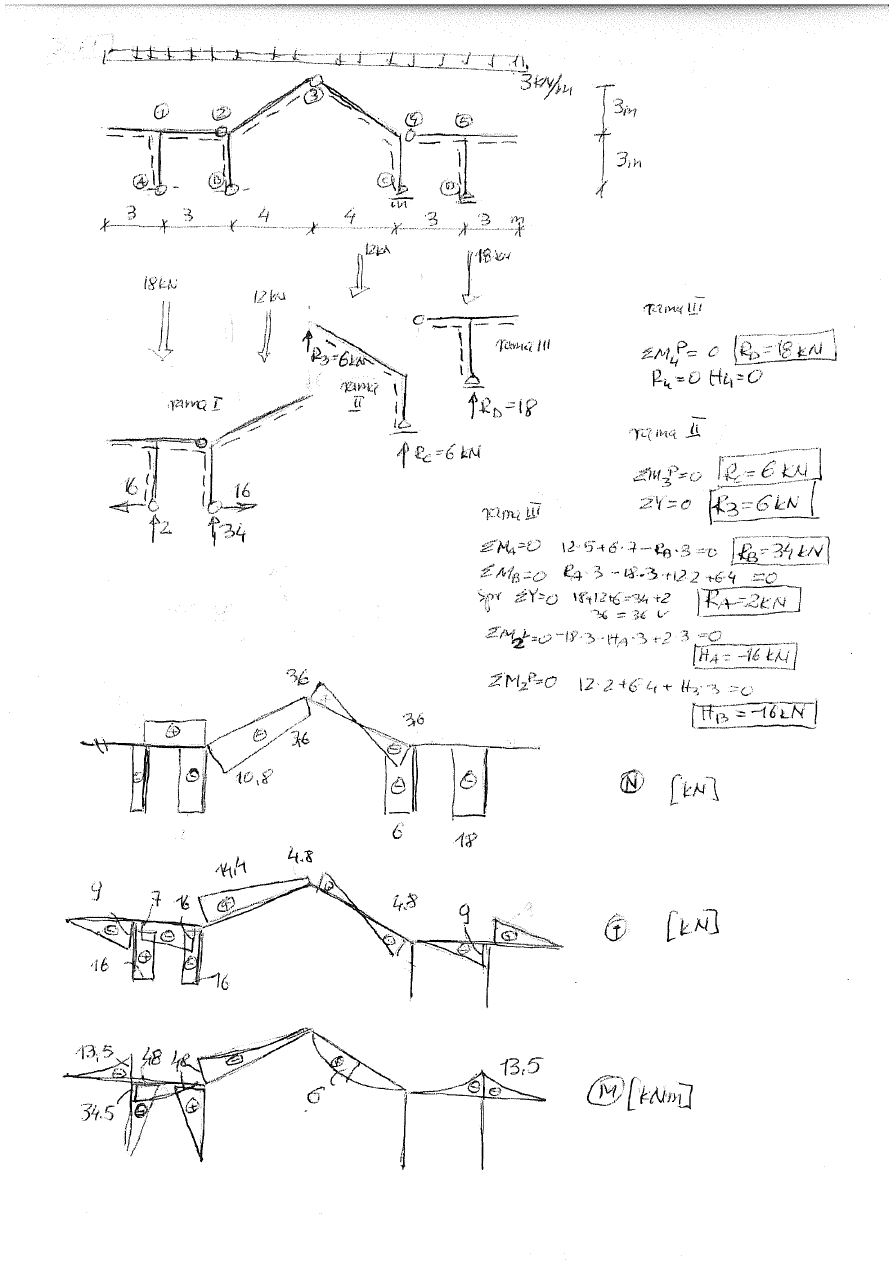 3 kN/m
3m
3m
① ② ③ ④ ⑤
Ⓐ Ⓑ Ⓒ Ⓓ
3 3 4 4 3 3 m
12kN
18kN
18kN
12kN
R3=6kN
rama II
rama III
rama I
RD=18
RC=6 kN
16
16
2
34
rama III
ΣM4P=0 RD=18kN
R4=0 H4=0
rama II
ΣM3P=0 RC=6 kN
ΣY=0 R3=6kN
rama III
ΣMA=0 12·5+6·7-RB·3=0 RB=34kN
ΣMB=0 RA·3-18·3+12·2+6·4=0
Spr ΣY=0 18+12+6=34+2 RA=2kN
36=36 ✓
ΣM2L=0 -18·3-HA·3+2·3=0
HA=-16kN
ΣM2P=0 12·2+6·4+HB·3=0
HB=-16kN
3,6
3,6
3,6
10,8
6
18
N [kN]
14,4
4.8
4.8
9
7
16
9
16
16
T [kN]
13,5
48
48
34.5
6
13,5
M [kNm]